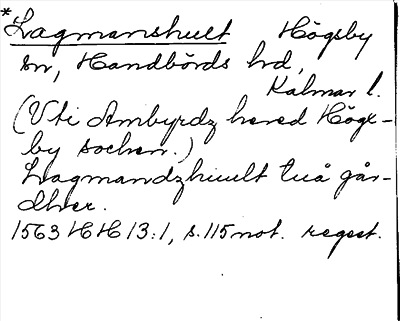 *Lagmanshult Högsby
sn, Handbörds hd,
Kalmar l.
(Vti Ambyrdz hered Högx-
by sochen.)
Lagmandzhiult tuå går-
dher.
1563 HH 13:1, s. 115 not. regest.